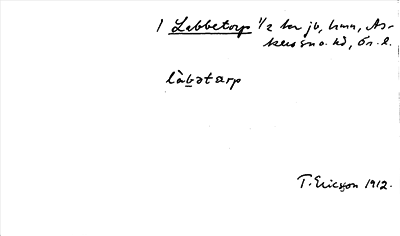 1 Labbetorp 1/2 hm jb, hmn, As-
kers sn o. hd, Ör. l.
làbətarp
T. Ericsson 1912.